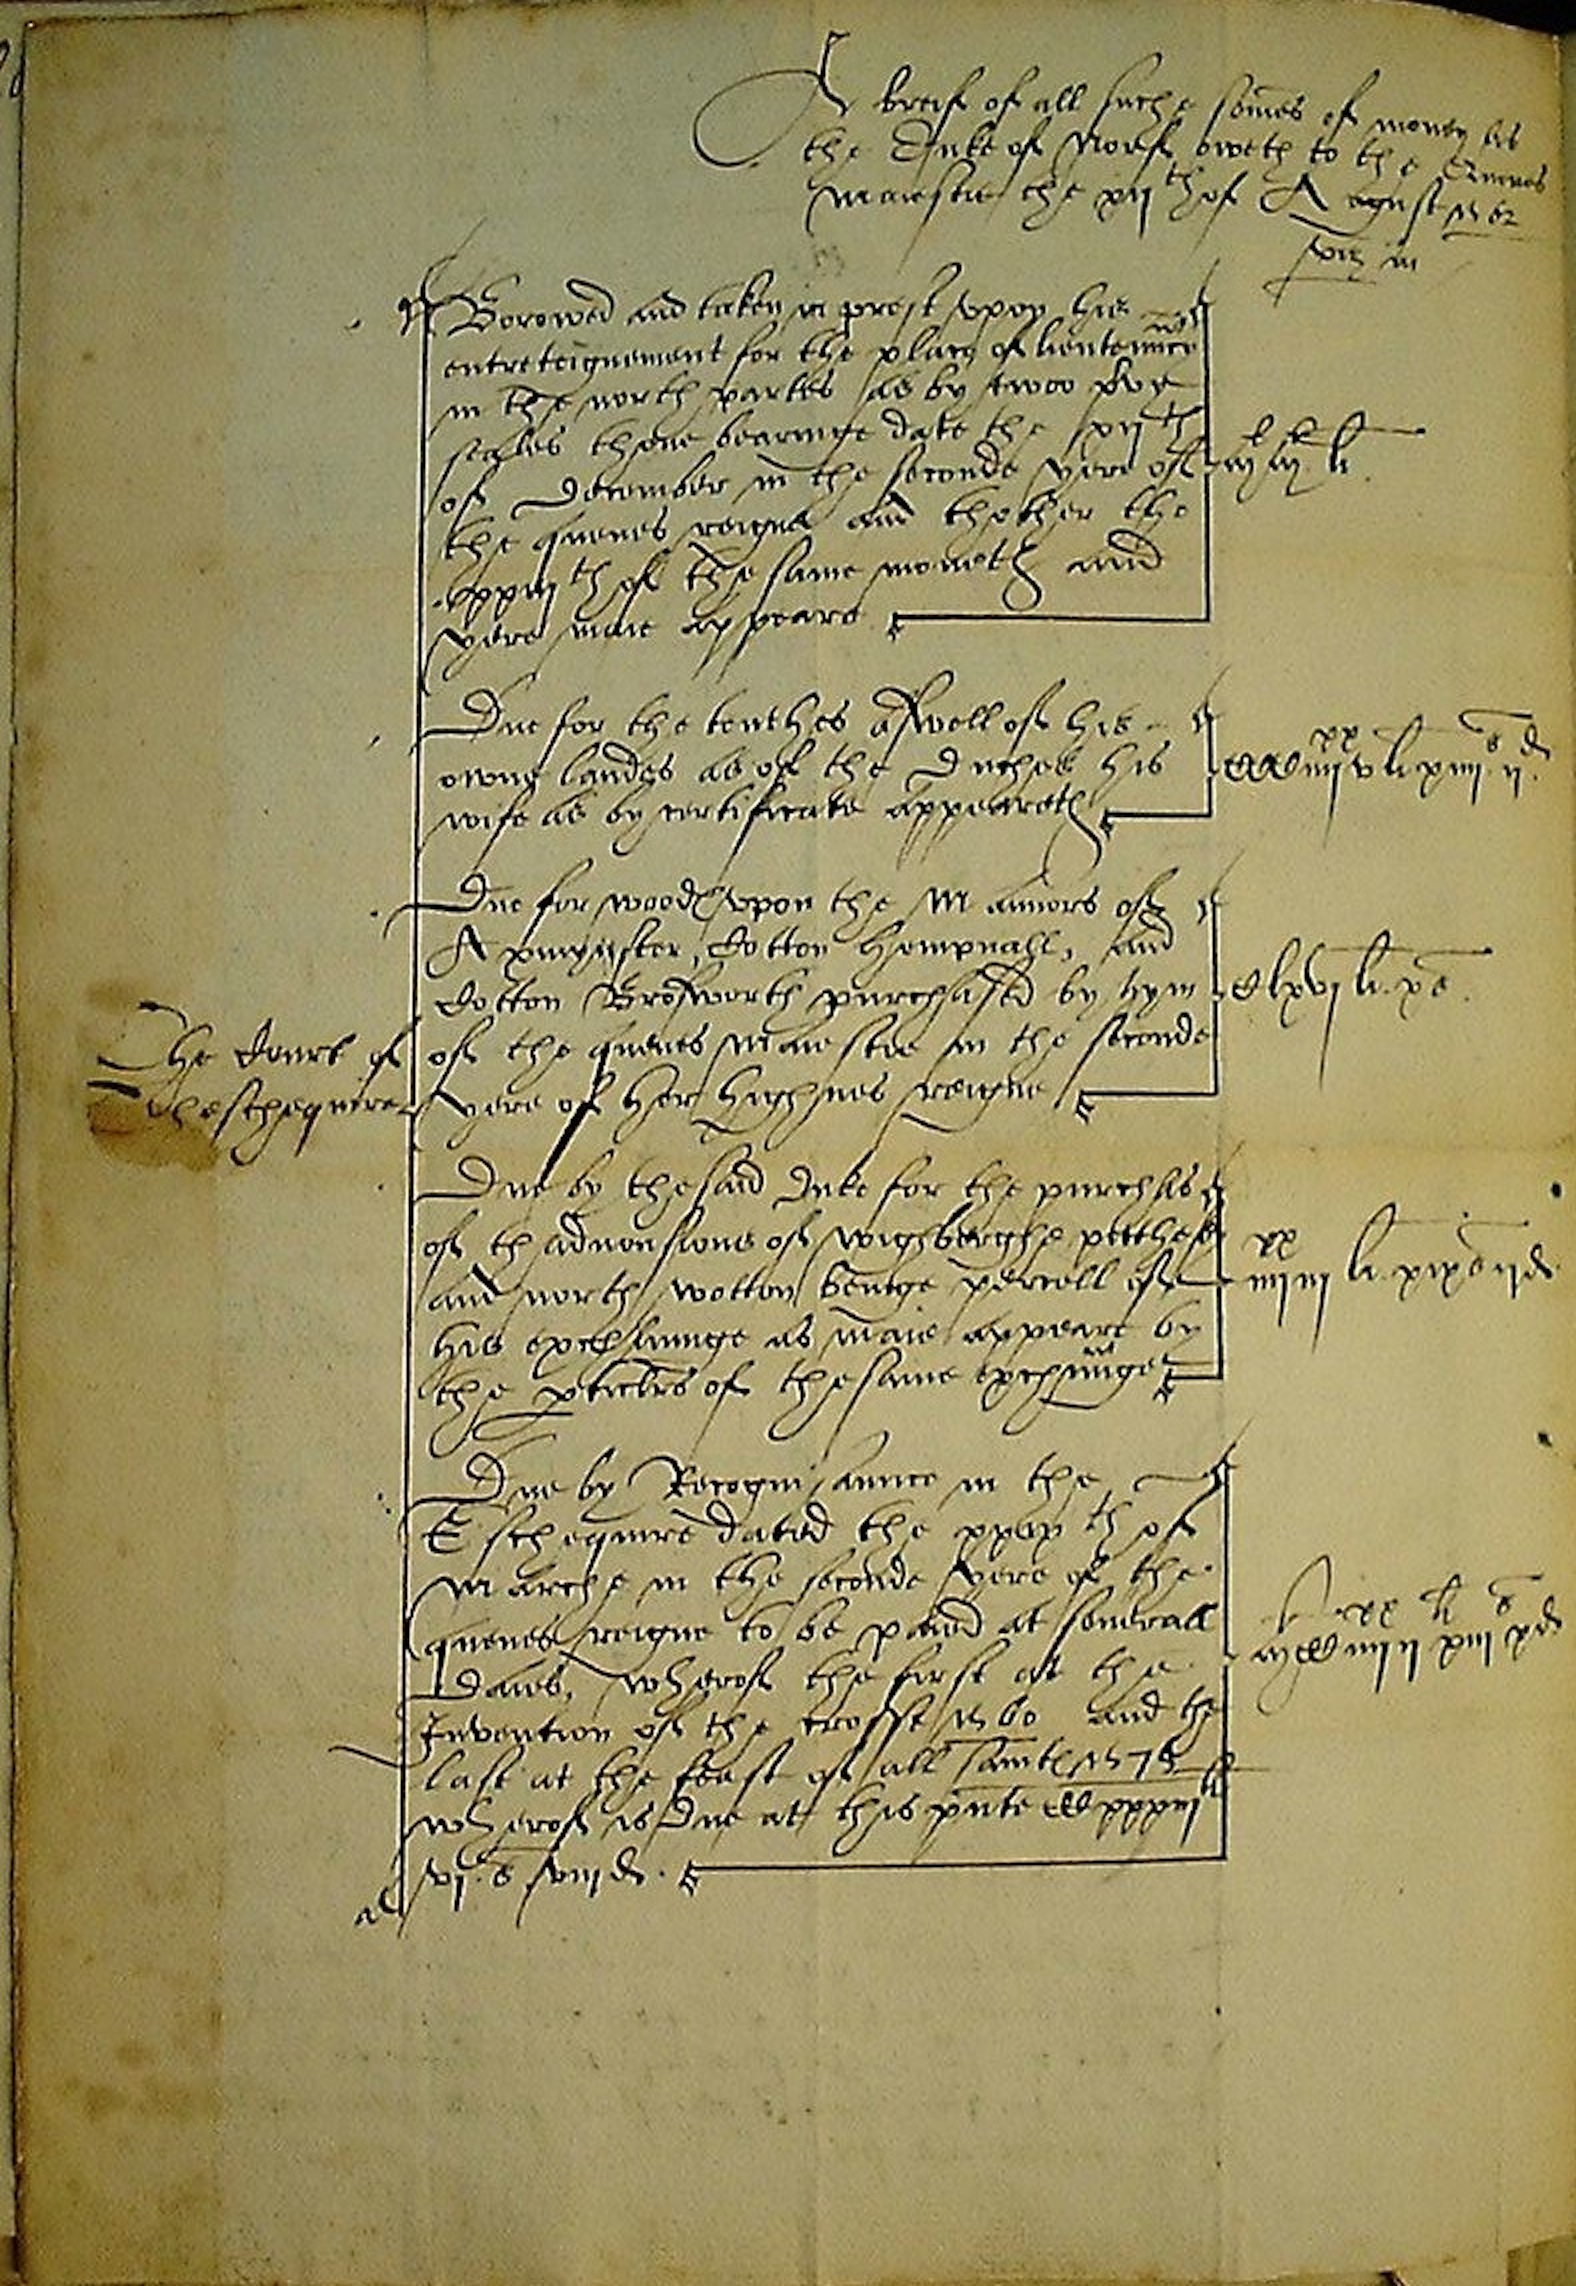 A breif of all suche somes of money as
the Duke of Norff oweth to the Quenes
Maiestie the xijth of August 1562
viz in
Borowed and taken in prest vpon his
entreteignement for the place of lieutennce
in the north partes as by twoo pvye
seales thone bearinge date the xijth
of December in the seconde yere of
the quenes reigne and thother the
of the same moneth and
yere maie appeare
Due for the tenthes aswell of his
owne landes as of the Duches his
wife as by certificate appeareth
Due for woodes vpon the Mannors of
Axmynster, Cotton Hempnall, and
Cotton purchased by hym
of the quenes Maiestie in the seconde
yere of her highnes reigne
clxvj li. xs.
The Court of
Theschequire
Due by the said Duke for the purchas
of thadvousions of
and north wotton beinge percell of
his exchaunge as maie appeare by
the pticlers of the same exchaunge
xx
iiij iij li. xixs ijd.
Due by Recognisaunce in the
Eschequire dated the xxvth of
Marche in the seconde yere of the
quenes reigne to be paied at severall
Daies, wherof the first at the
Invention of the crosse 1560 and the
last at the feast of all saintes
wherof is due at this pnte
vj.s viijd.